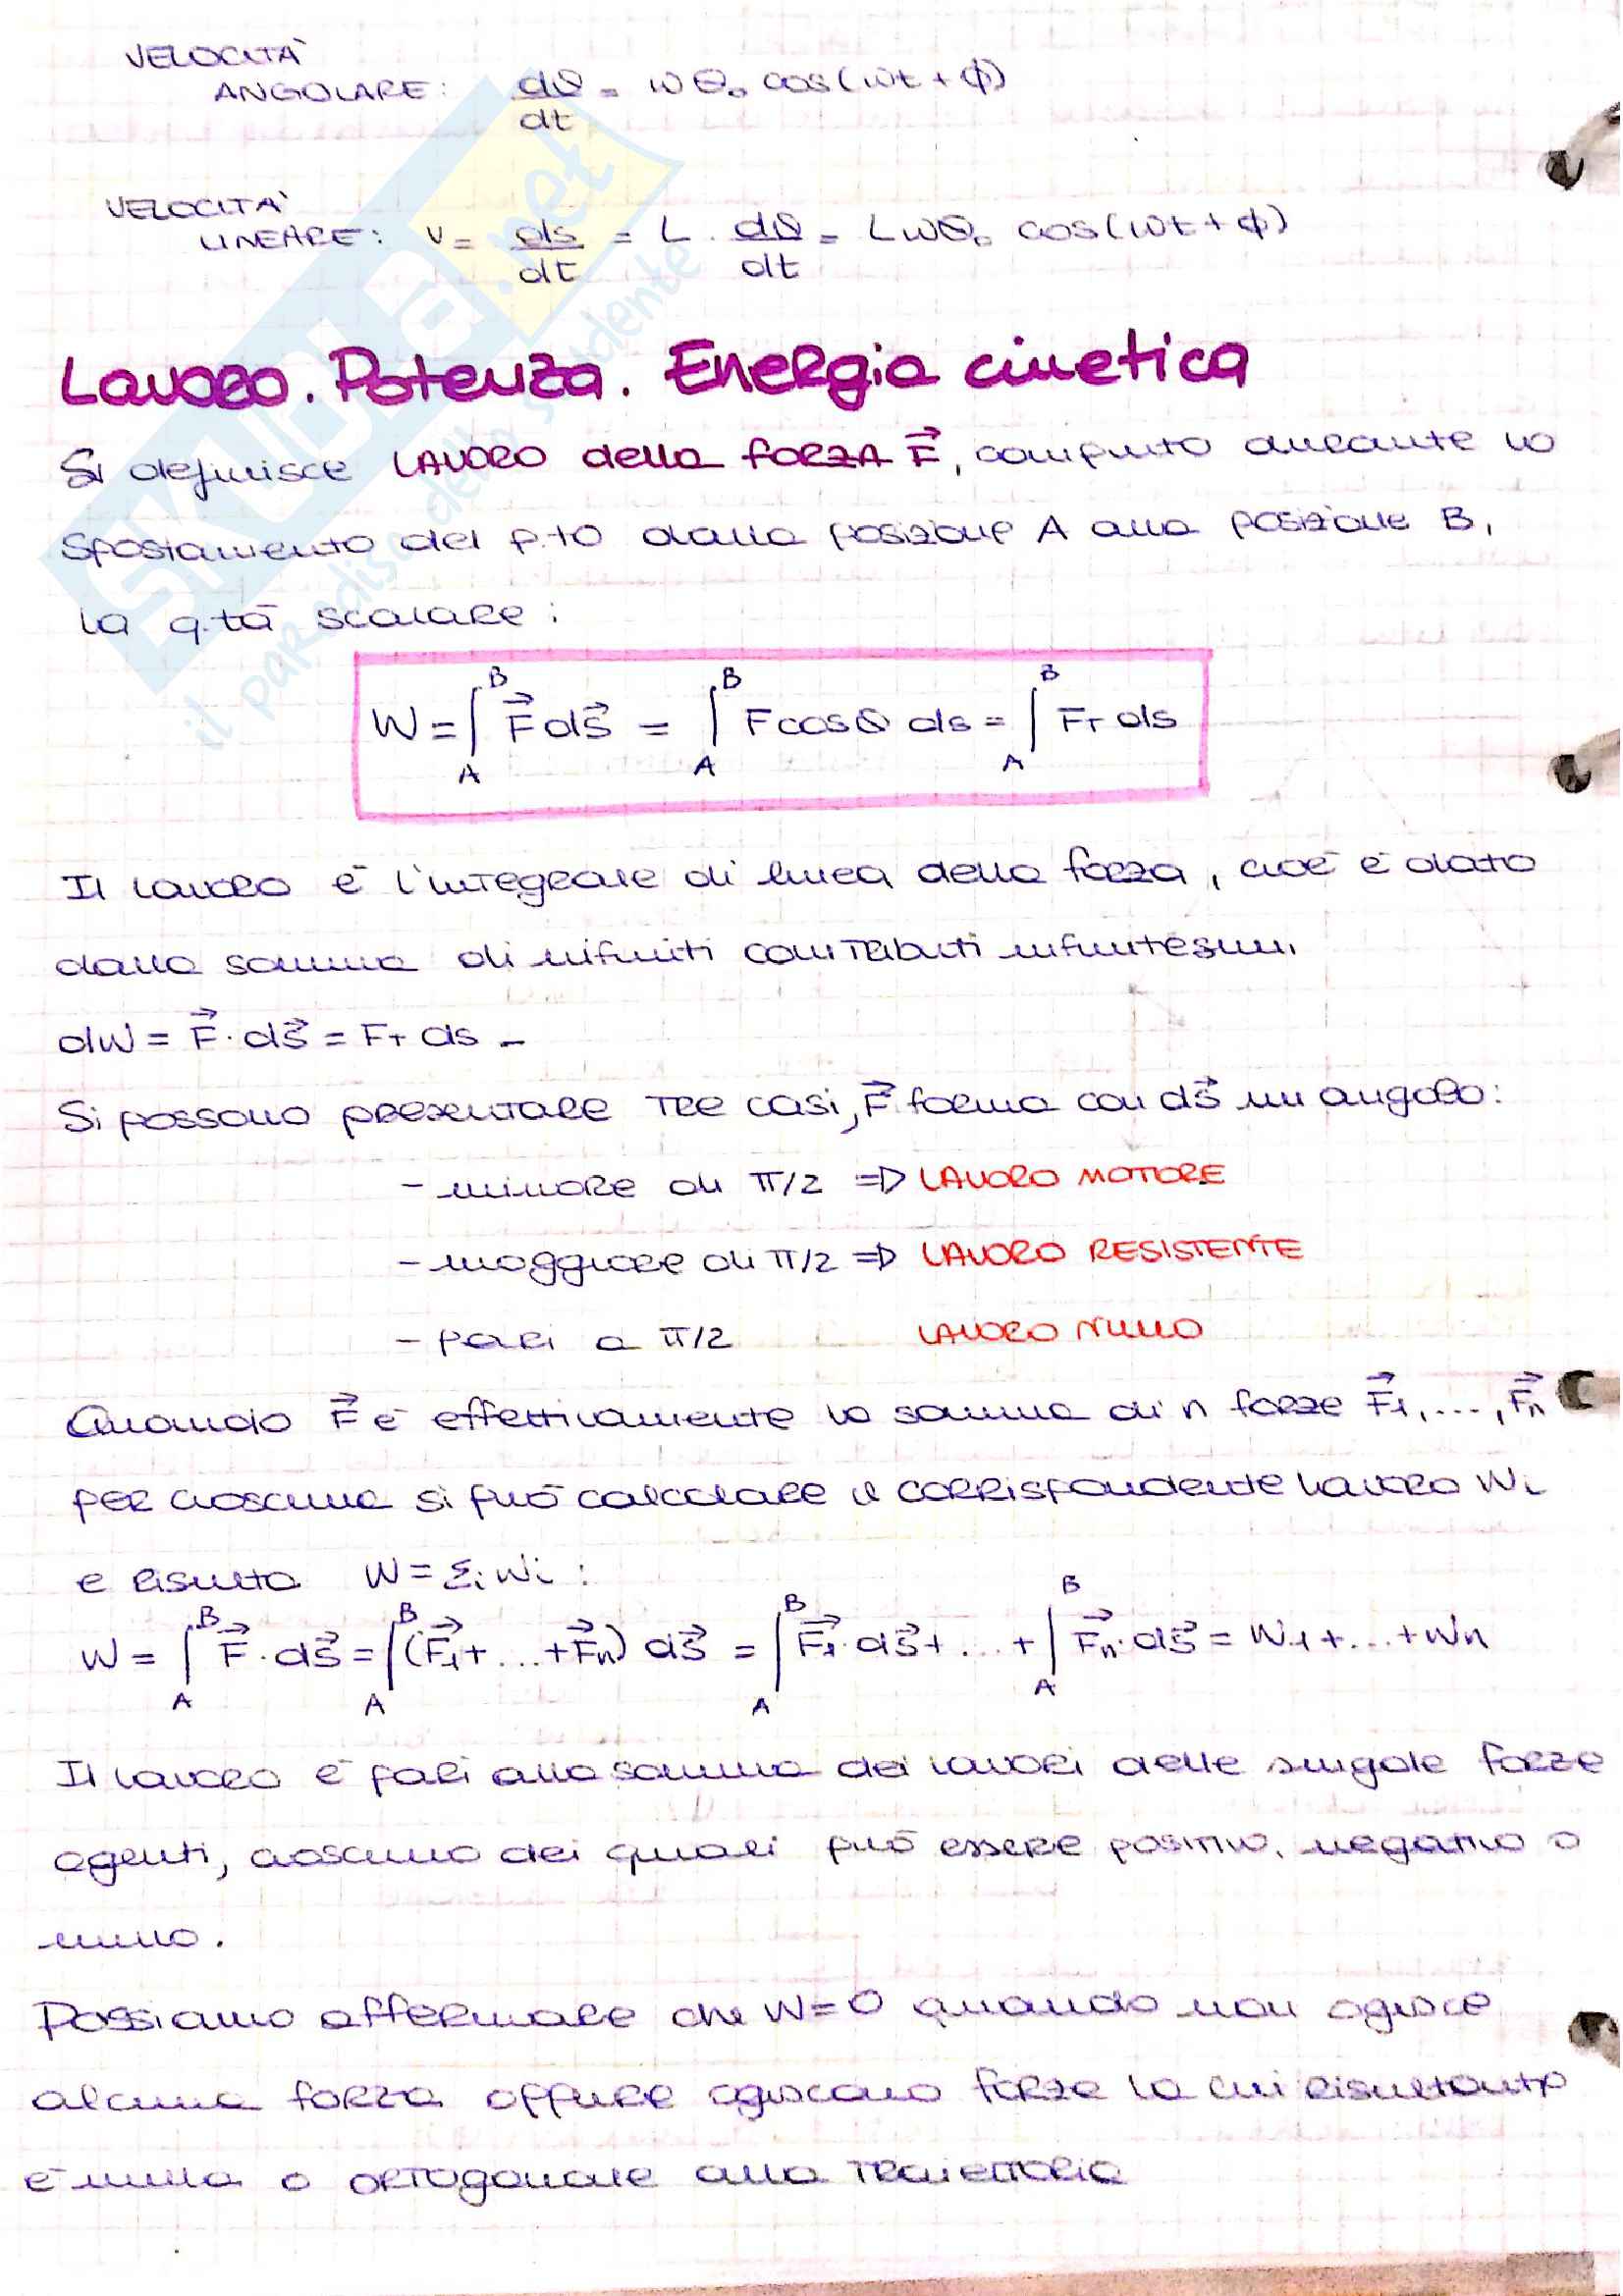 VELOCITÀ
ANGOLARE: dθ/dt = ωθ₀ cos(ωt + ϕ)
VELOCITÀ
LINEARE: v = ds/dt = L · dθ/dt = Lωθ₀ cos(ωt + ϕ)
Lavoro. Potenza. Energia cinetica
Si definisce LAVORO della FORZA F⃗, compiuto durante lo
spostamento del p.to dalla posizione A alla posizione B,
la q.tà scalare:
W = ∫_A^B F⃗ ds⃗ = ∫_A^B F cosθ ds = ∫_A^B F_T ds
Il lavoro è l'integrale di linea della forza, cioè è dato
dalla somma di infiniti contributi infinitesimi
dW = F⃗ · ds⃗ = F_T ds -
Si possono presentare tre casi, F⃗ forma con ds⃗ un angolo:
- minore di π/2 => LAVORO MOTORE
- maggiore di π/2 => LAVORO RESISTENTE
- pari a π/2 LAVORO NULLO
Quando F⃗ è effettivamente la somma di n forze F⃗₁, ..., F⃗ₙ
per ciascuna si può calcolare il corrispondente lavoro Wᵢ
e risulta W = Σᵢ Wᵢ :
W = ∫_A^B F⃗ · ds⃗ = ∫_A^B (F⃗₁ + ... + F⃗ₙ) ds⃗ = ∫_A^B F⃗₁ · ds⃗ + ... + ∫_A^B F⃗ₙ · ds⃗ = W₁ + ... + Wₙ
Il lavoro è pari alla somma dei lavori delle singole forze
agenti, ciascuno dei quali può essere positivo, negativo o
nullo.
Possiamo affermare che W=0 quando non agisce
alcuna forza oppure agiscono forze la cui risultante
è nulla o ortogonale alla traiettoria
SKUOLA.net
il paradiso dello studente